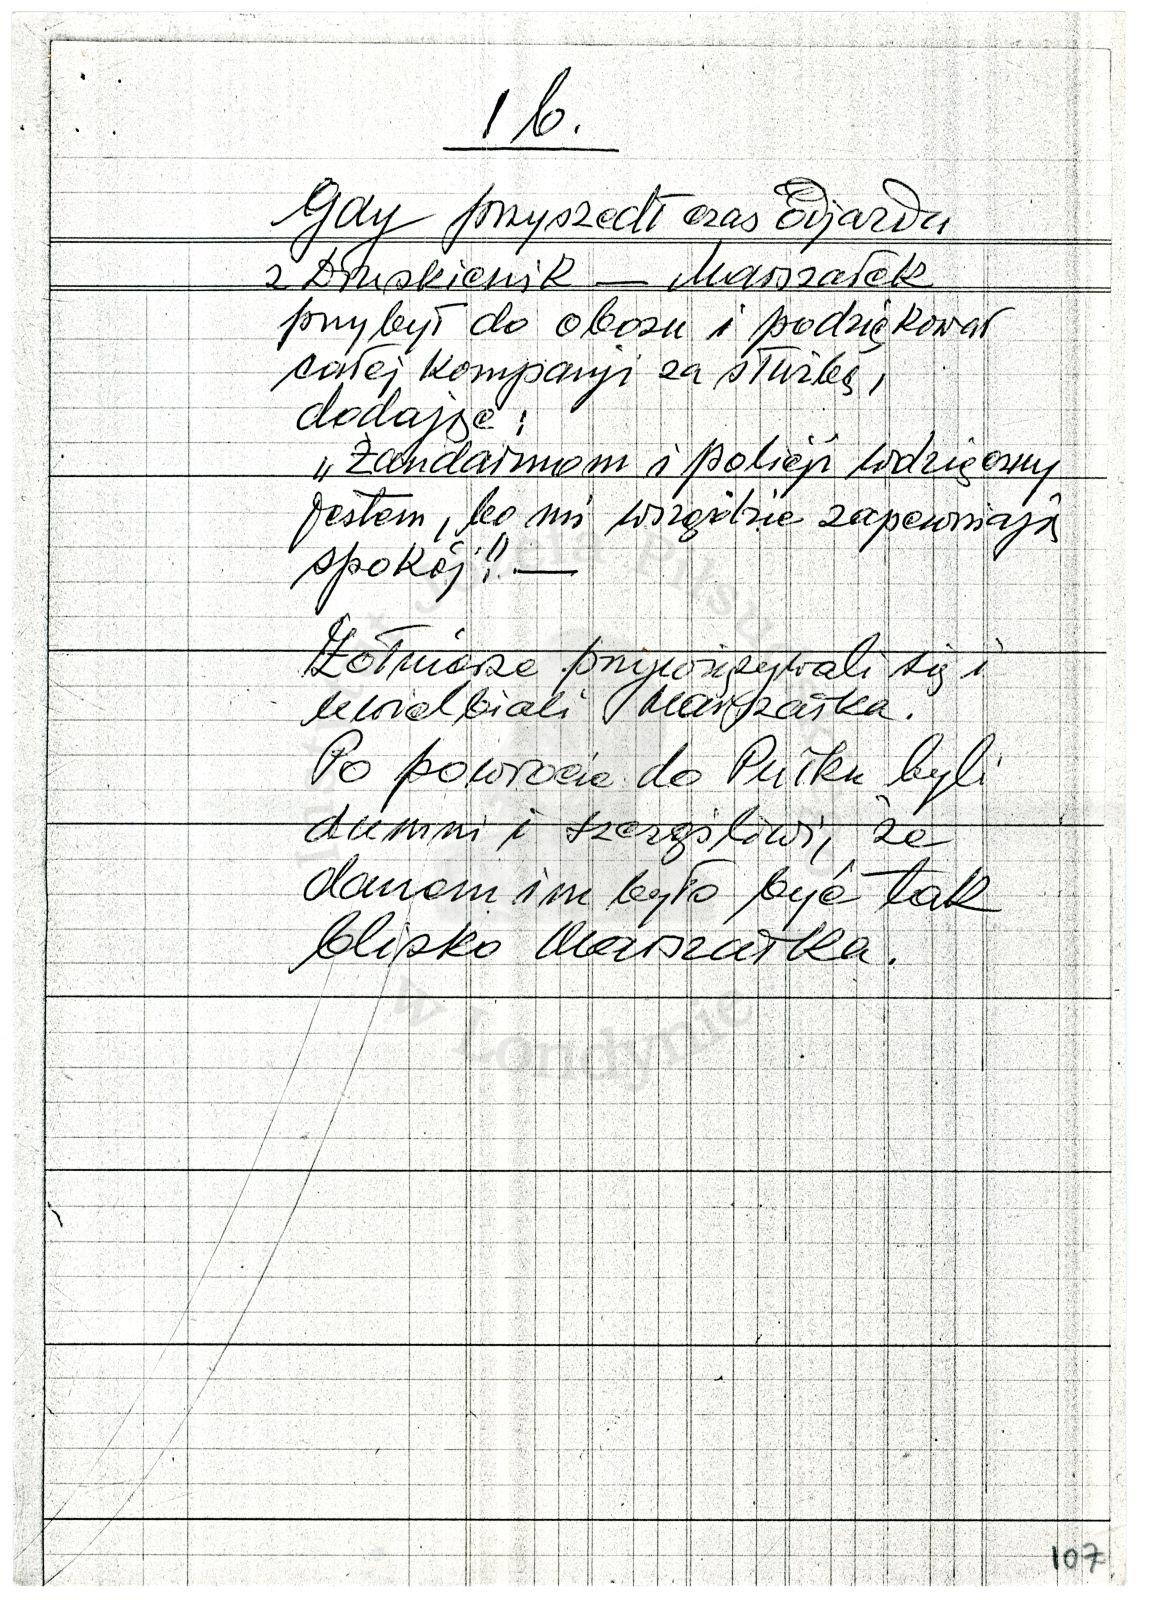 1 b.
Gdy przyszedł czas Odjazdu
z Druskienik — Marszałek
przybył do obozu i podziękował
całej kompanji za służbę,
dodając:
„Żandarmom i policji wdzięczny
jestem, bo mi wszędzie zapewniają
spokój!" —
Żołnierze przywiązywali się i
uwielbiali Marszałka.
Po powrocie do Pułku byli
dumni i szczęśliwi, że
danem im było być tak
blisko Marszałka.
Józefa Piłsu
w Londynie
107